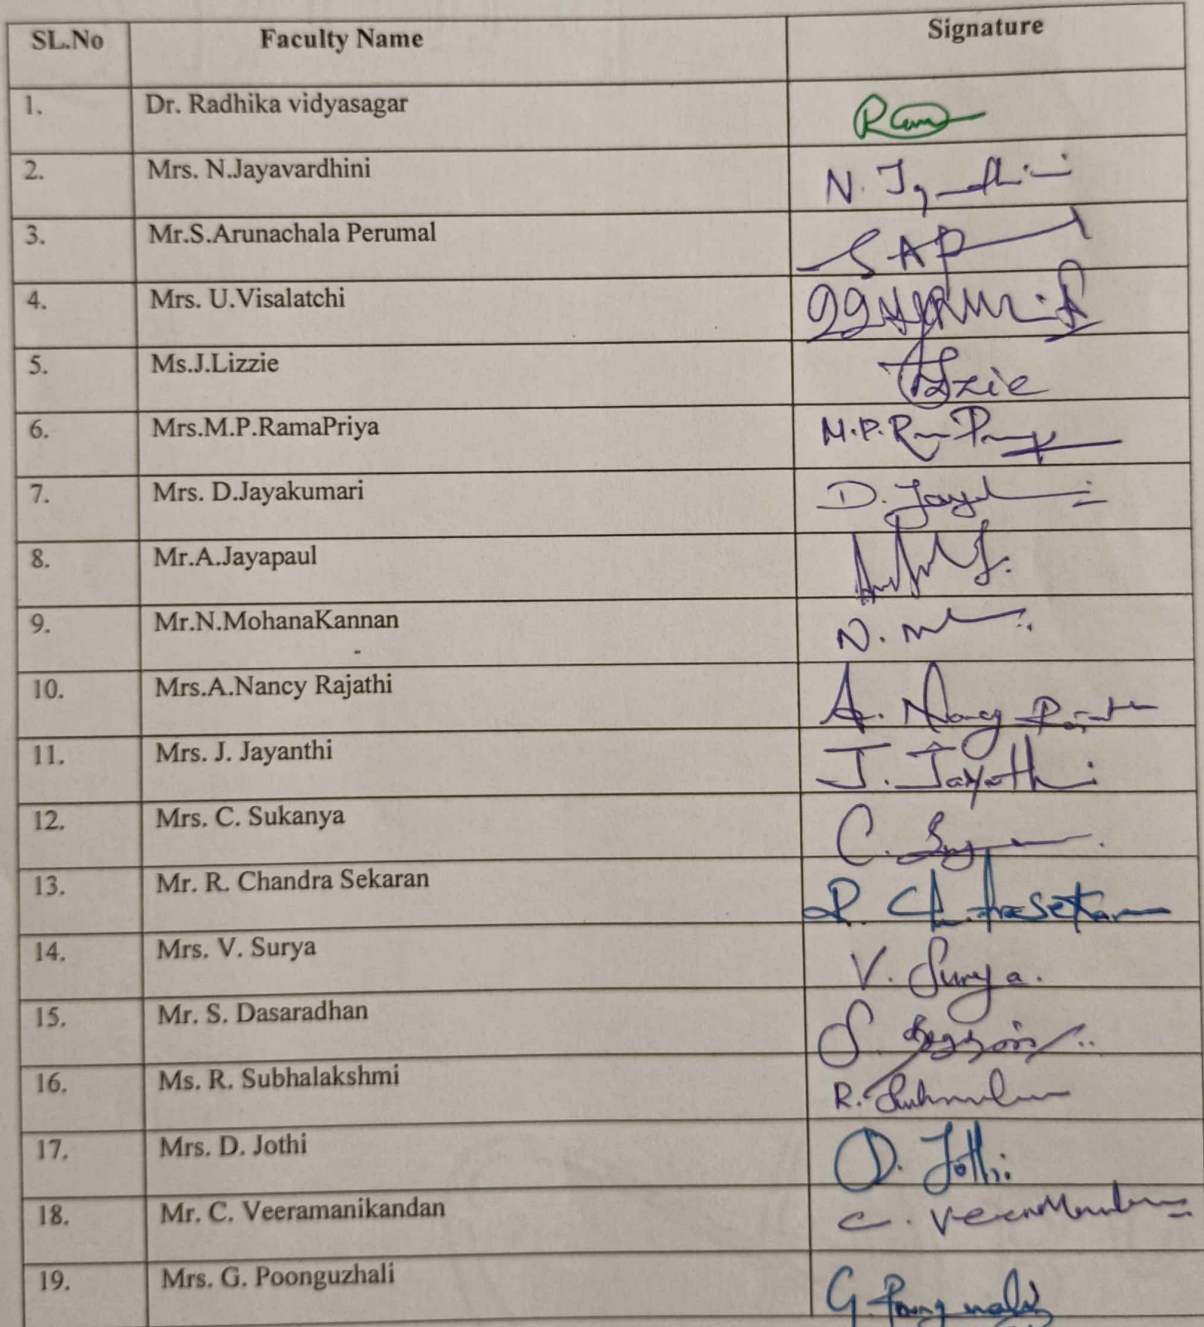 SL.No Faculty Name Signature
1. Dr. Radhika vidyasagar
2. Mrs. N.Jayavardhini N.
3. Mr.S.Arunachala Perumal SAP
4. Mrs. U.Visalatchi
5. Ms.J.Lizzie Lizzie
6. Mrs.M.P.RamaPriya M.P.
7. Mrs. D.Jayakumari D.
8. Mr.A.Jayapaul
9. Mr.N.MohanaKannan N.
10. Mrs.A.Nancy Rajathi A. Nancy
11. Mrs. J. Jayanthi J. Jayanthi
12. Mrs. C. Sukanya C.
13. Mr. R. Chandra Sekaran R. Chandrasekaran
14. Mrs. V. Surya V. Surya.
15. Mr. S. Dasaradhan S.
16. Ms. R. Subhalakshmi R.
17. Mrs. D. Jothi D. Jothi
18. Mr. C. Veeramanikandan C.
19. Mrs. G. Poonguzhali G.